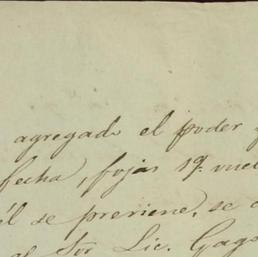 agregado el poder
fecha, fojas 19. vuel
él se previene, se
al Sor Lic. Gago